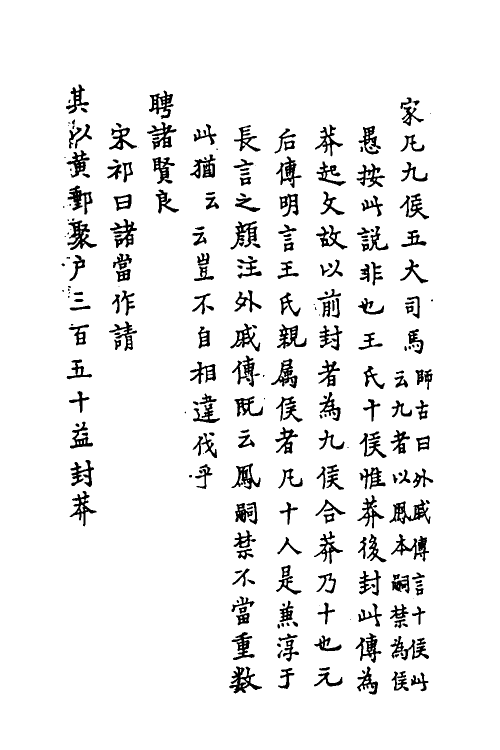 家凡九侯五大司馬師古曰外戚傳言十侯此
云九者以鳳本嗣禁為侯
愚按此説非也王氏十侯惟莽後封此傳為
莽起文故以前封者為九侯合莽乃十也元
后傳明言王氏親属侯者凡十人是兼淳于
長言之顔注外戚傳既云鳳嗣禁不當重数
此猶云云豈不自相違伐乎
聘諸賢良
宋祁曰諸當作請
其以黄郵聚户三百五十益封莽